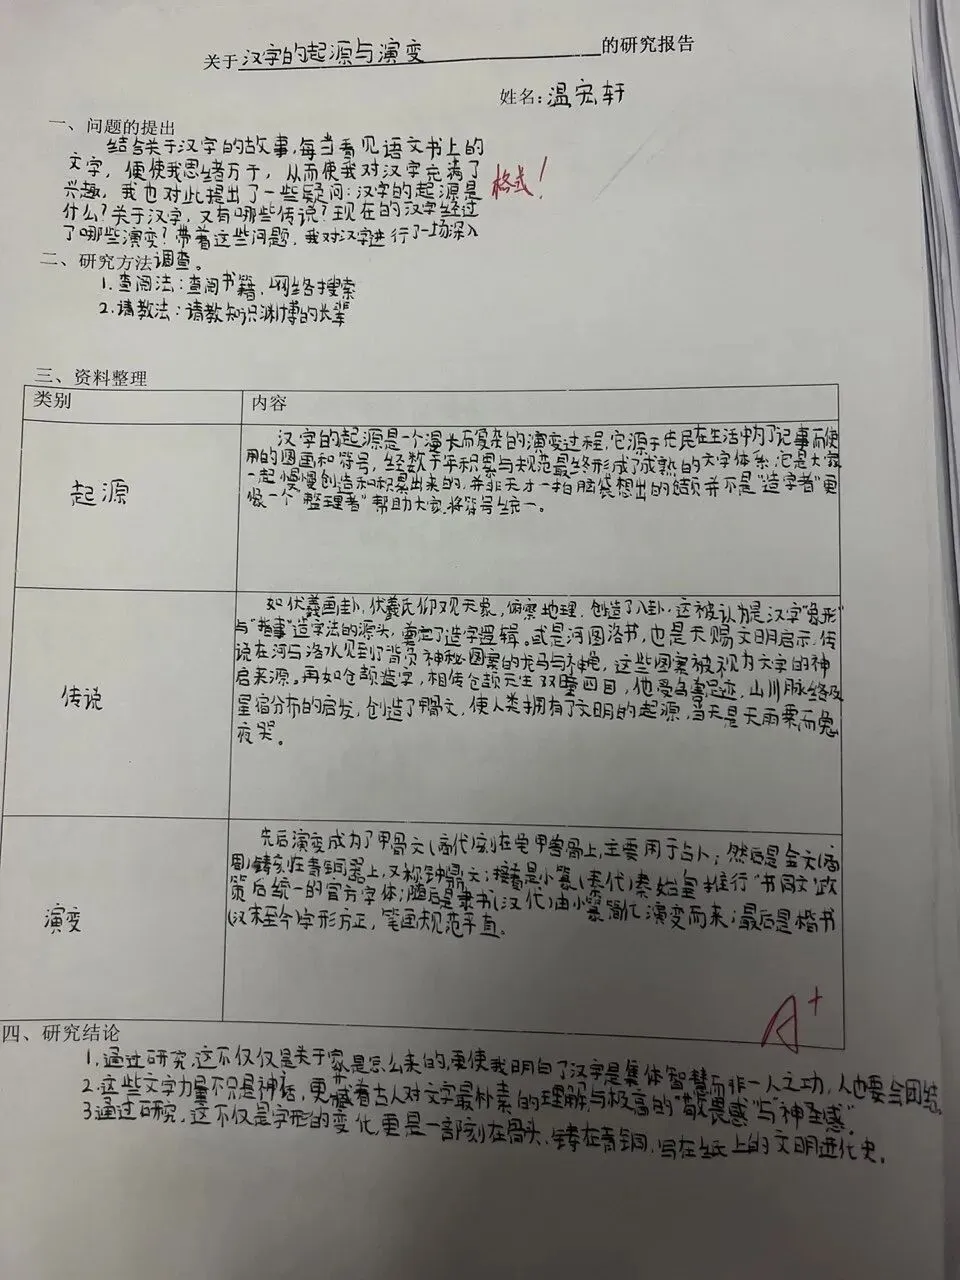 关于汉字的起源与演变的研究报告
姓名:温宏轩
一、问题的提出
结合关于汉字的故事,每当看见语文书上的
文字,便使我思绪万千,从而使我对汉字充满了
兴趣,我也对此提出了一些疑问:汉字的起源是
什么?关于汉字,又有哪些传说?现在的汉字经过
了哪些演变?带着这些问题,我对汉字进行了一场深入
格式!
二、研究方法调查。
1.查阅法:查阅书籍,网络搜索
2.请教法:请教知识渊博的长辈
三、资料整理
类别
内容
起源
汉字的起源是一个漫长而复杂的演变过程,它源于先民在生活中为了记事而使
用的图画和符号,经数千年积累与规范最终形成了成熟的文字体系,它是大家
一起慢慢创造和积累出来的,并非天才一拍脑袋想出的,仓颉并不是“造字者”更
像一个“整理者”帮助大家,将符号统一。
传说
如伏羲画卦,伏羲氏仰观天象,俯察地理,创造了八卦,这被认为是汉字“象形”
与“指事”造字法的源头,奠定了造字逻辑。或是河图洛书,也是天赐文明启示,传
说在河与洛水见到了背负神秘图案的龙马与神龟,这些图案被视为文字的神
启来源。再如仓颉造字,相传仓颉天生双瞳四目,他受鸟兽足迹,山川脉络及
星宿分布的启发,创造了甲骨文,使人类拥有了文明的起源,当天是天雨粟而鬼
夜哭。
演变
先后演变成为了甲骨文(商代)刻在龟甲兽骨上,主要用于占卜;然后是金文(商
周)铸刻在青铜器上,又称钟鼎文;接着是小篆(秦代)秦始皇推行“书同文”政
策后统一的官方字体;随后是隶书(汉代)由小篆简化演变而来;最后是楷书
(汉末至今)字形方正,笔画规范平直。
A+
四、研究结论
1.通过研究,这不仅仅是关于字是怎么来的,更使我明白了汉字是集体智慧而非一人之功,人也要会团结。
2.这些文字力量不只是神话,更藏着古人对文字最朴素的理解,与极高的“敬畏感”与“神圣感”。
3.通过研究,这不仅是字形的变化,更是一部刻在骨头,铸在青铜,写在纸上的文明进化史。